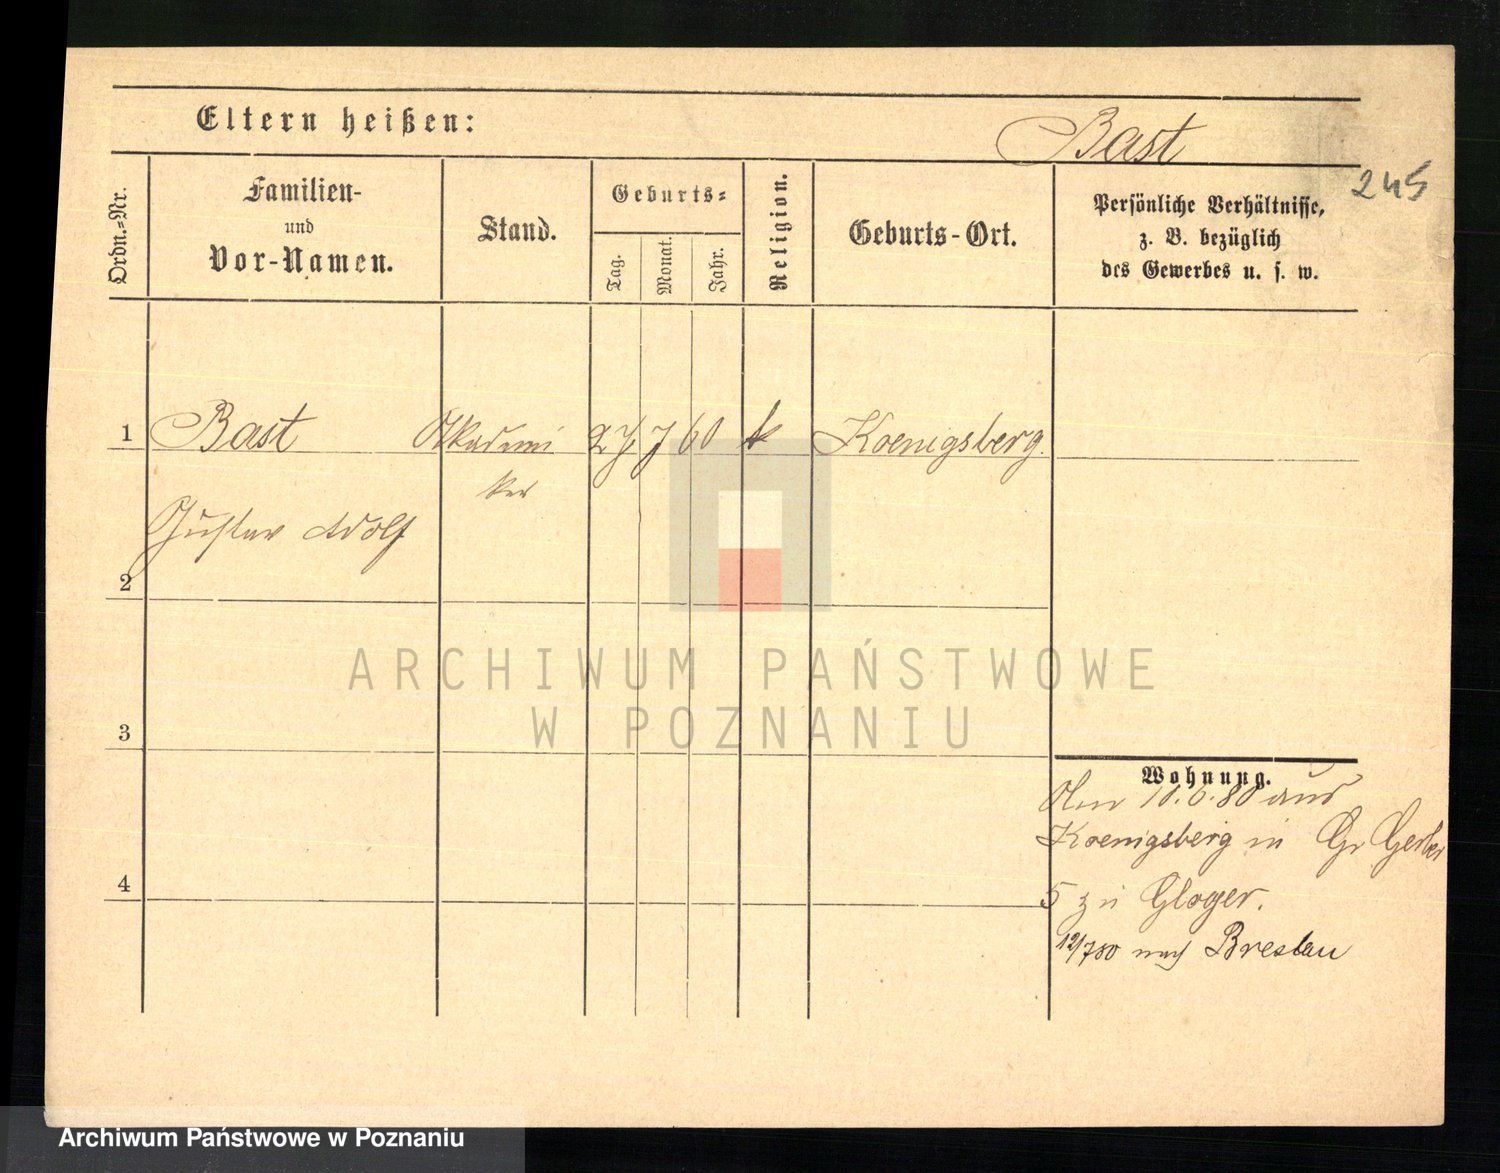 Eltern heißen:
Bast
245
Ordn.=Nr.
Familien-
und
Vor-Namen.
Stand.
Geburts=
Tag.
Monat.
Jahr.
Religion.
Geburts-Ort.
Persönliche Verhältnisse,
z. B. bezüglich
des Gewerbes u. s. w.
1 Bast Akademi 27 7 60 k Koenigsberg.
ker
Gustav Adolf
2
3
4
Wohnung.
Am 10.6.80 aus
Koenigsberg in Gr Gerber
5 zu Gloger.
12/7 80 nach Breslau
ARCHIWUM PAŃSTWOWE
W POZNANIU
Archiwum Państwowe w Poznaniu